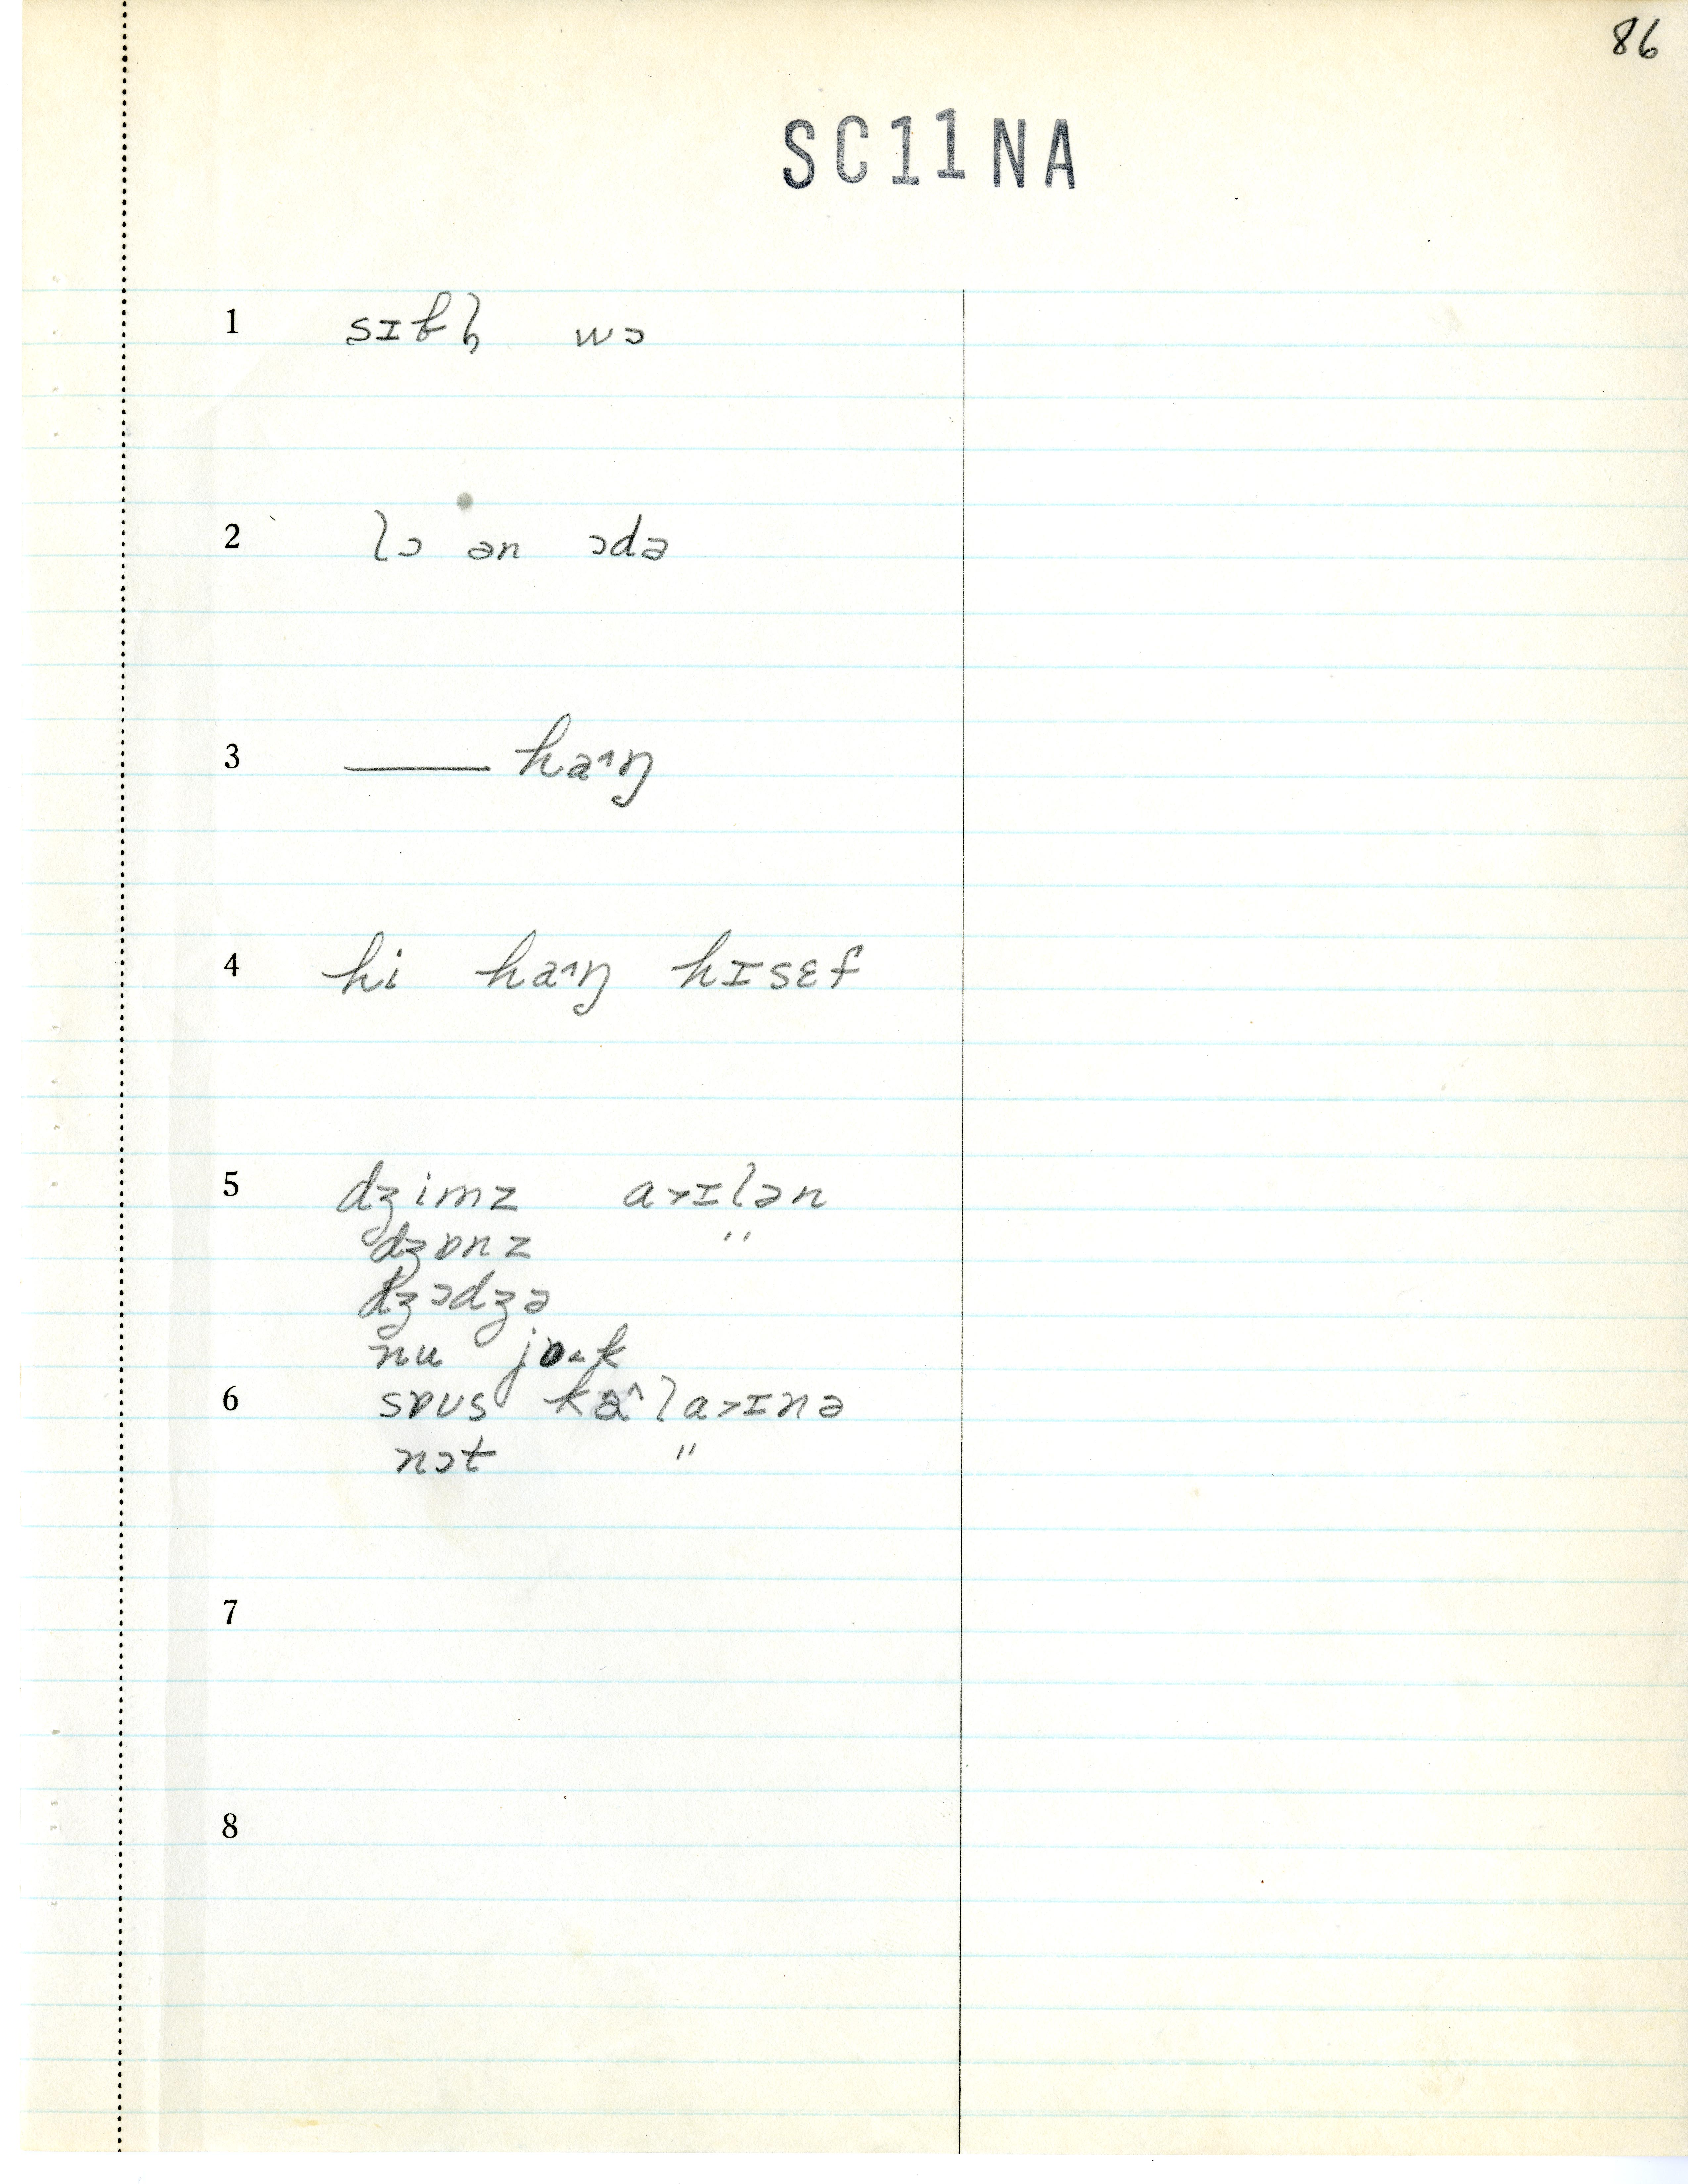 86
SC11NA
1 sɪɓl̩ wɔ
2 lɔ ən ɔdə
3 —— ha˄ŋ
4 hi ha˄ŋ hɪsɛf
5 dʒimz a˃ɪlən
dʒɒnz "
dʒɔdʒə
nu jɒ˔k
6 sɒʊs ka˄la˃ɪnə
nɔt "
7
8